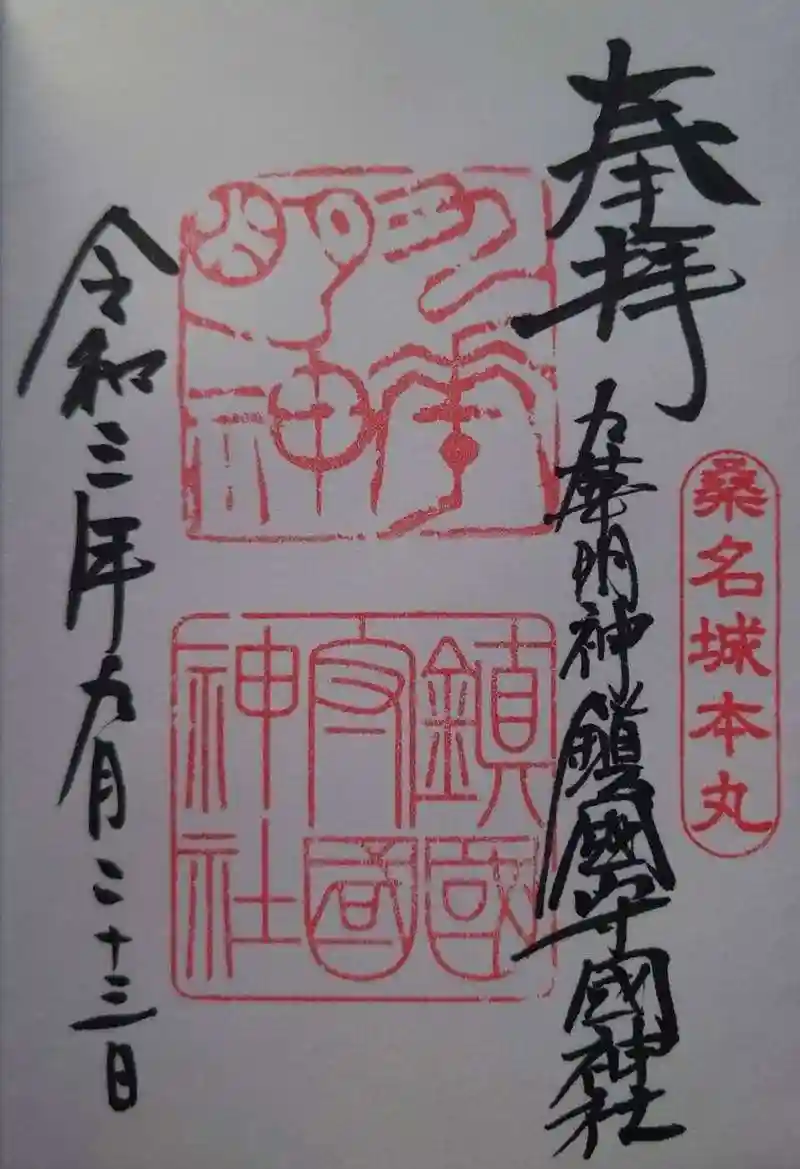 奉拝
桑名城本丸
九華明神鎮國守國神社
鎮國
守國
神社
令和三年九月二十三日